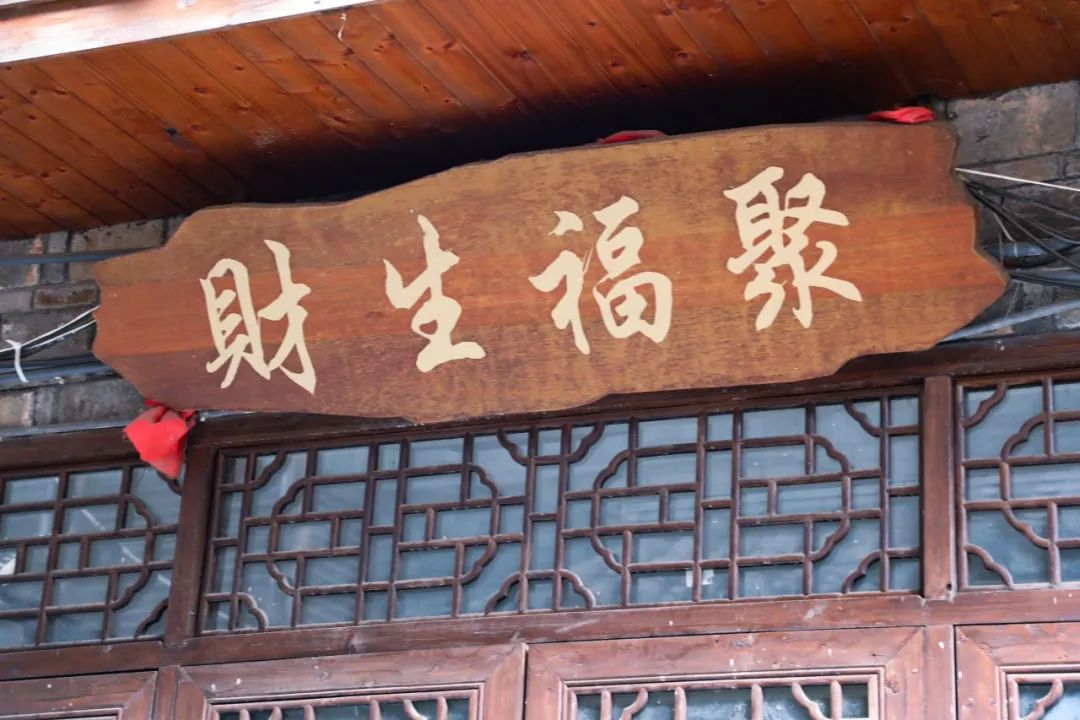 聚福生財